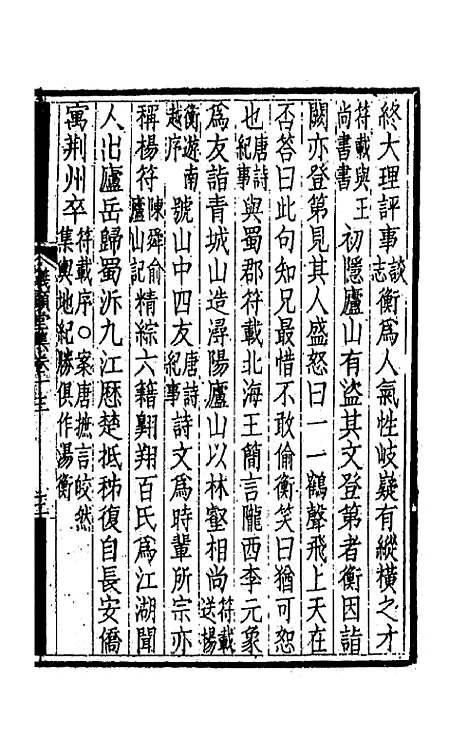 終大理評事談志衡爲人氣性岐疑有縱橫之才
符載與王尚書書初隱廬山有盜其文登第者衡因詣
闕亦登第見其人盛怒曰一一鶴聲飛上天在
否答曰此句知兄最惜不敢偷衡笑曰猶可恕
也唐詩紀事與蜀郡符載北海王簡言隴西李元象
爲友詣青城山造潯陽廬山以林壑相尚符載送楊
衡遊南越序號山中四友唐詩紀事詩文爲時輩所宗亦
稱楊符陳舜俞廬山記精綜六籍翺翔百氏爲江湖聞
人㳂廬岳歸蜀泝九江歴楚抵秭復自長安僑
寓荆州卒符載序○案唐摭言皎然集輿地紀勝俱作湯衡
儀顧堂集卷十三